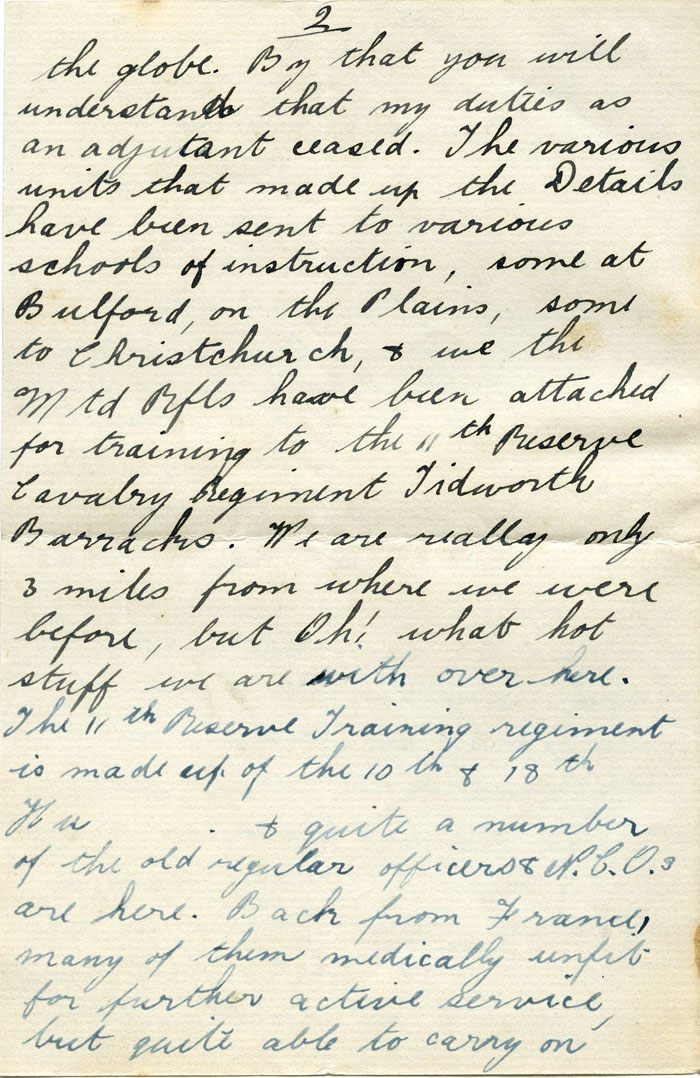 2
the globe. By that you will
understand that my duties as
an adjutant ceased. The various
units that made up the Details
have been sent to various
schools of instruction, some at
Bulford, on the Plains, some
to Christchurch, & we the
Mtd Rfls have been attached
for training to the 11th Reserve
Cavalry Regiment Tidworth
Barracks. We are really only
3 miles from where we were
before, but Oh! what hot
stuff we are with over here.
The 11th Reserve Training regiment
is made up of the 10th & 18th
Hu & quite a number
of the old regular officers & N.C.O.s
are here. Back from France,
many of them medically unfit
for further active service,
but quite able to carry on